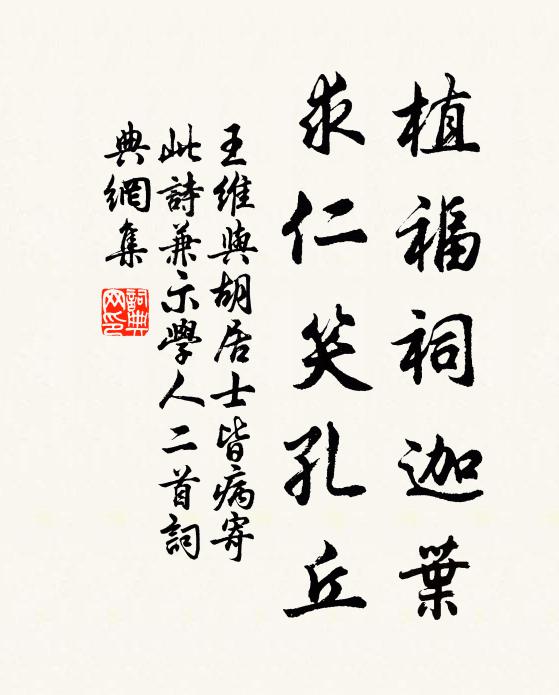 植福祠迦葉
求仁笑孔丘
王維與胡居士皆病寄
此詩兼示學人二首詞
典網集
詞典
网印